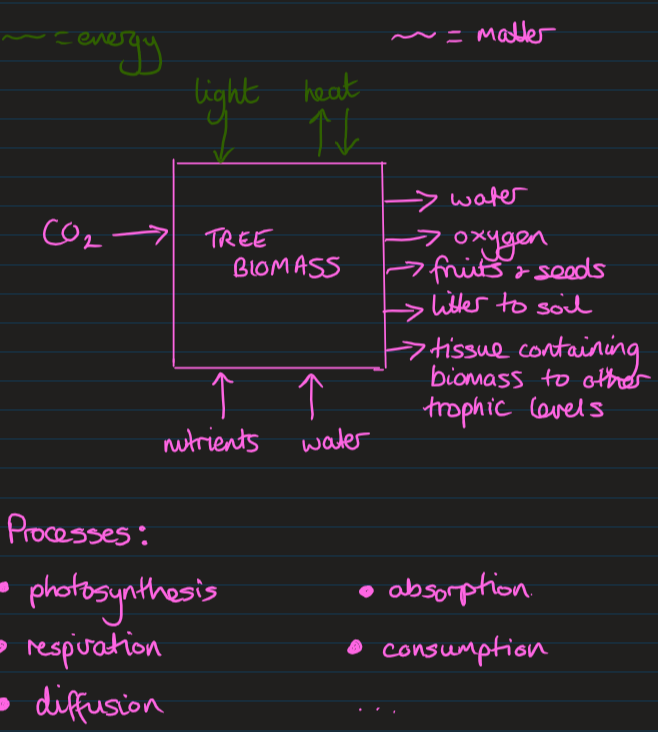 ~ = energy
~ = matter
light heat
CO₂
TREE
BIOMASS
water
oxygen
fruits & seeds
litter to soil
tissue containing
biomass to other
trophic levels
nutrients water
Processes:
• photosynthesis
• absorption.
• respiration
• consumption
• diffusion
...